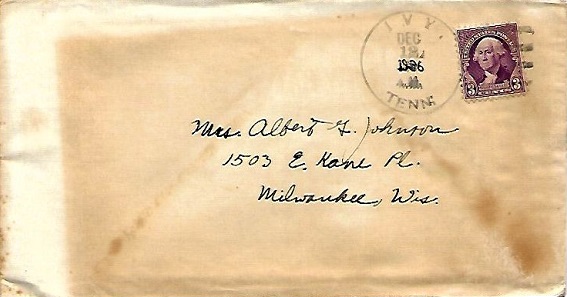 IVY.
DEC
12
1936
A.M.
TENN.
UNITED STATES POSTAGE
3 3
Mrs. Albert G. Johnson
1503 E. Kane Pl.
Milwaukee, Wis.